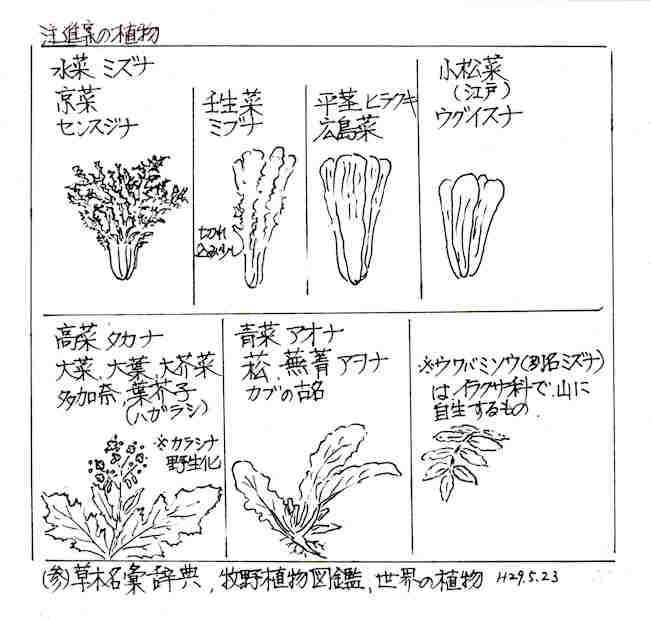 注進案の植物
水菜 ミズナ
京菜
センスジナ
壬生菜
ミブナ
切れ
込み少し
平茎 ヒラクキ
広島菜
小松菜
(江戸)
ウグイスナ
高菜 タカナ
大菜、大葉、大芥菜
多加奈、葉芥子
(ハガラシ)
※カラシナ
野生化
青菜 アオナ
菘、蕪菁 アヲナ
カブの古名
※ウワバミソウ(別名ミズナ)
はイラクサ科で、山に
自生するもの.
(参)草木名彙辞典,牧野植物図鑑,世界の植物 H29.5.23